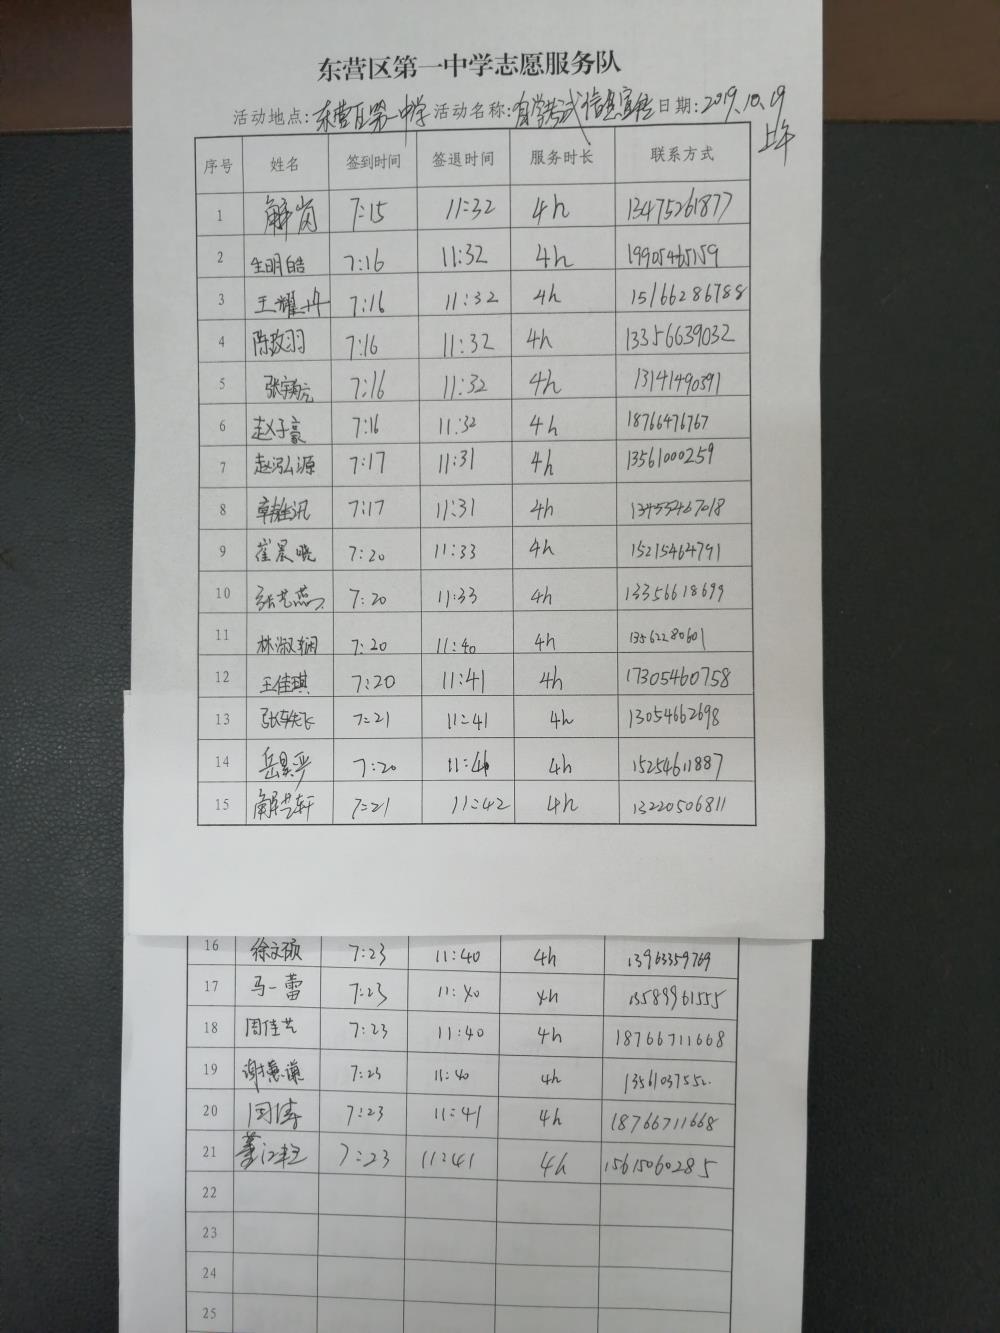 东营区第一中学志愿服务队
活动地点:东营区第一中学 活动名称:自学考试信息宣传 日期:2019.10.19
上午
序号 姓名 签到时间 签退时间 服务时长 联系方式
1 解岗 7:15 11:32 4h 13475261877
2 生明皓 7:16 11:32 4h 19905465159
3 王耀 7:16 11:32 4h 15166286788
4 陈政羽 7:16 11:32 4h 13356639032
5 张 7:16 11:32 4h 13141490391
6 赵子豪 7:16 11:32 4h 18766476767
7 赵泓源 7:17 11:31 4h 13561000259
8 7:17 11:31 4h 13455467018
9 崔晨晓 7:20 11:33 4h 15215464791
10 张艺燕 7:20 11:33 4h 13356618699
11 林淑娴 7:20 11:40 4h 13562280601
12 王佳琪 7:20 11:41 4h 17305460758
13 张轶飞 7:21 11:41 4h 13054662698
14 岳昊 7:20 11:41 4h 15254611887
15 解芸轩 7:21 11:42 4h 13220506811
16 徐文硕 7:23 11:40 4h 13963359769
17 马一蕾 7:23 11:40 4h 13589961555
18 周佳艺 7:23 11:40 4h 18766711668
19 谢慧谦 7:23 11:40 4h
20 闫倩 7:23 11:41 4h 18766711668
21 董江 7:23 11:41 4h 15615060285
22
23
24
25